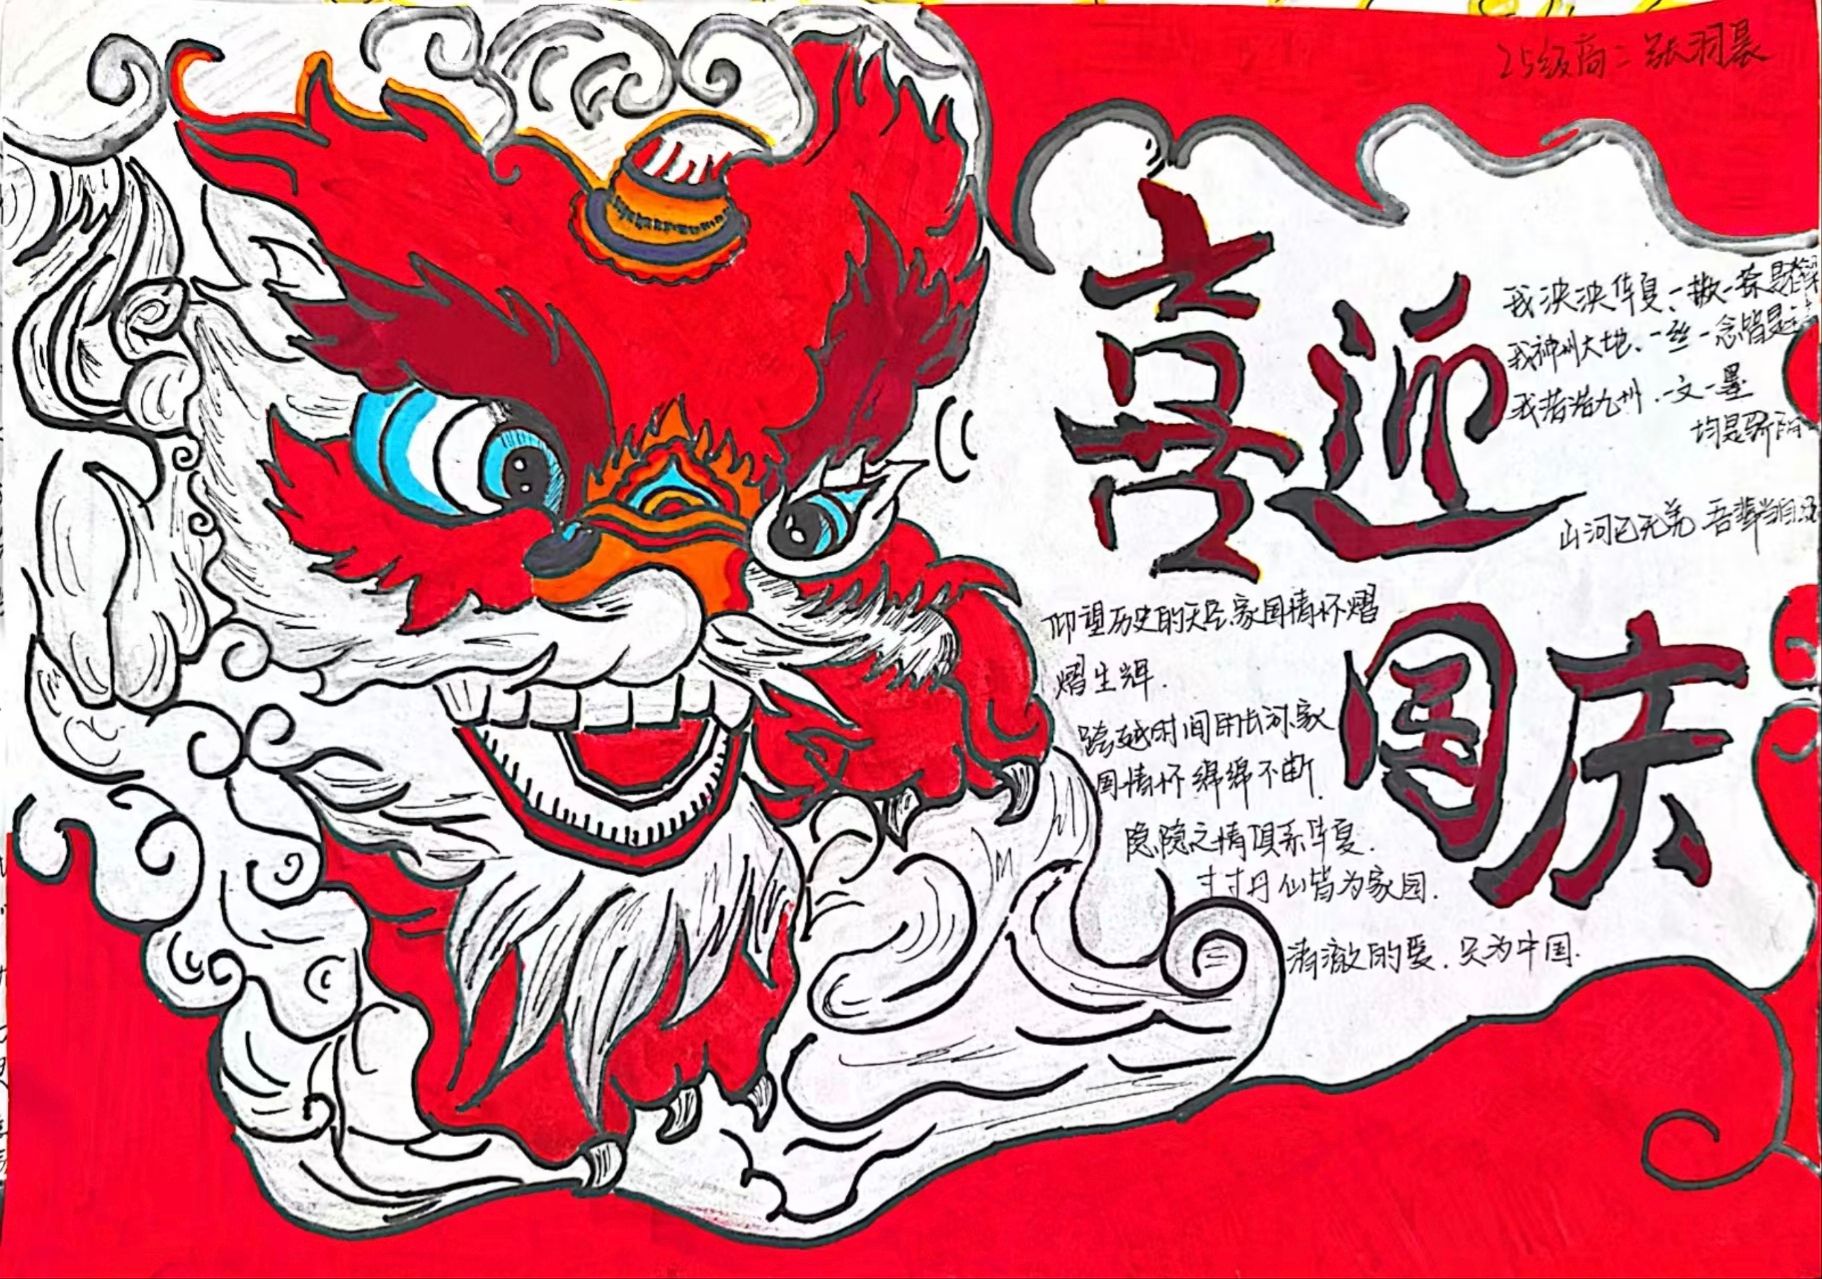 25级高二张羽晨
喜迎
国庆
我泱泱华夏、一撇一捺是
我神州大地、一丝一念皆是
我浩浩九州.一文一墨
均是
山河已无恙 吾辈当自
仰望历史的天空,家国情怀熠
熠生辉.
跨越时间的长河,家
国情怀绵绵不断.
隐隐之情 系华夏.
寸寸丹 皆为家园.
清澈的爱.只为中国.